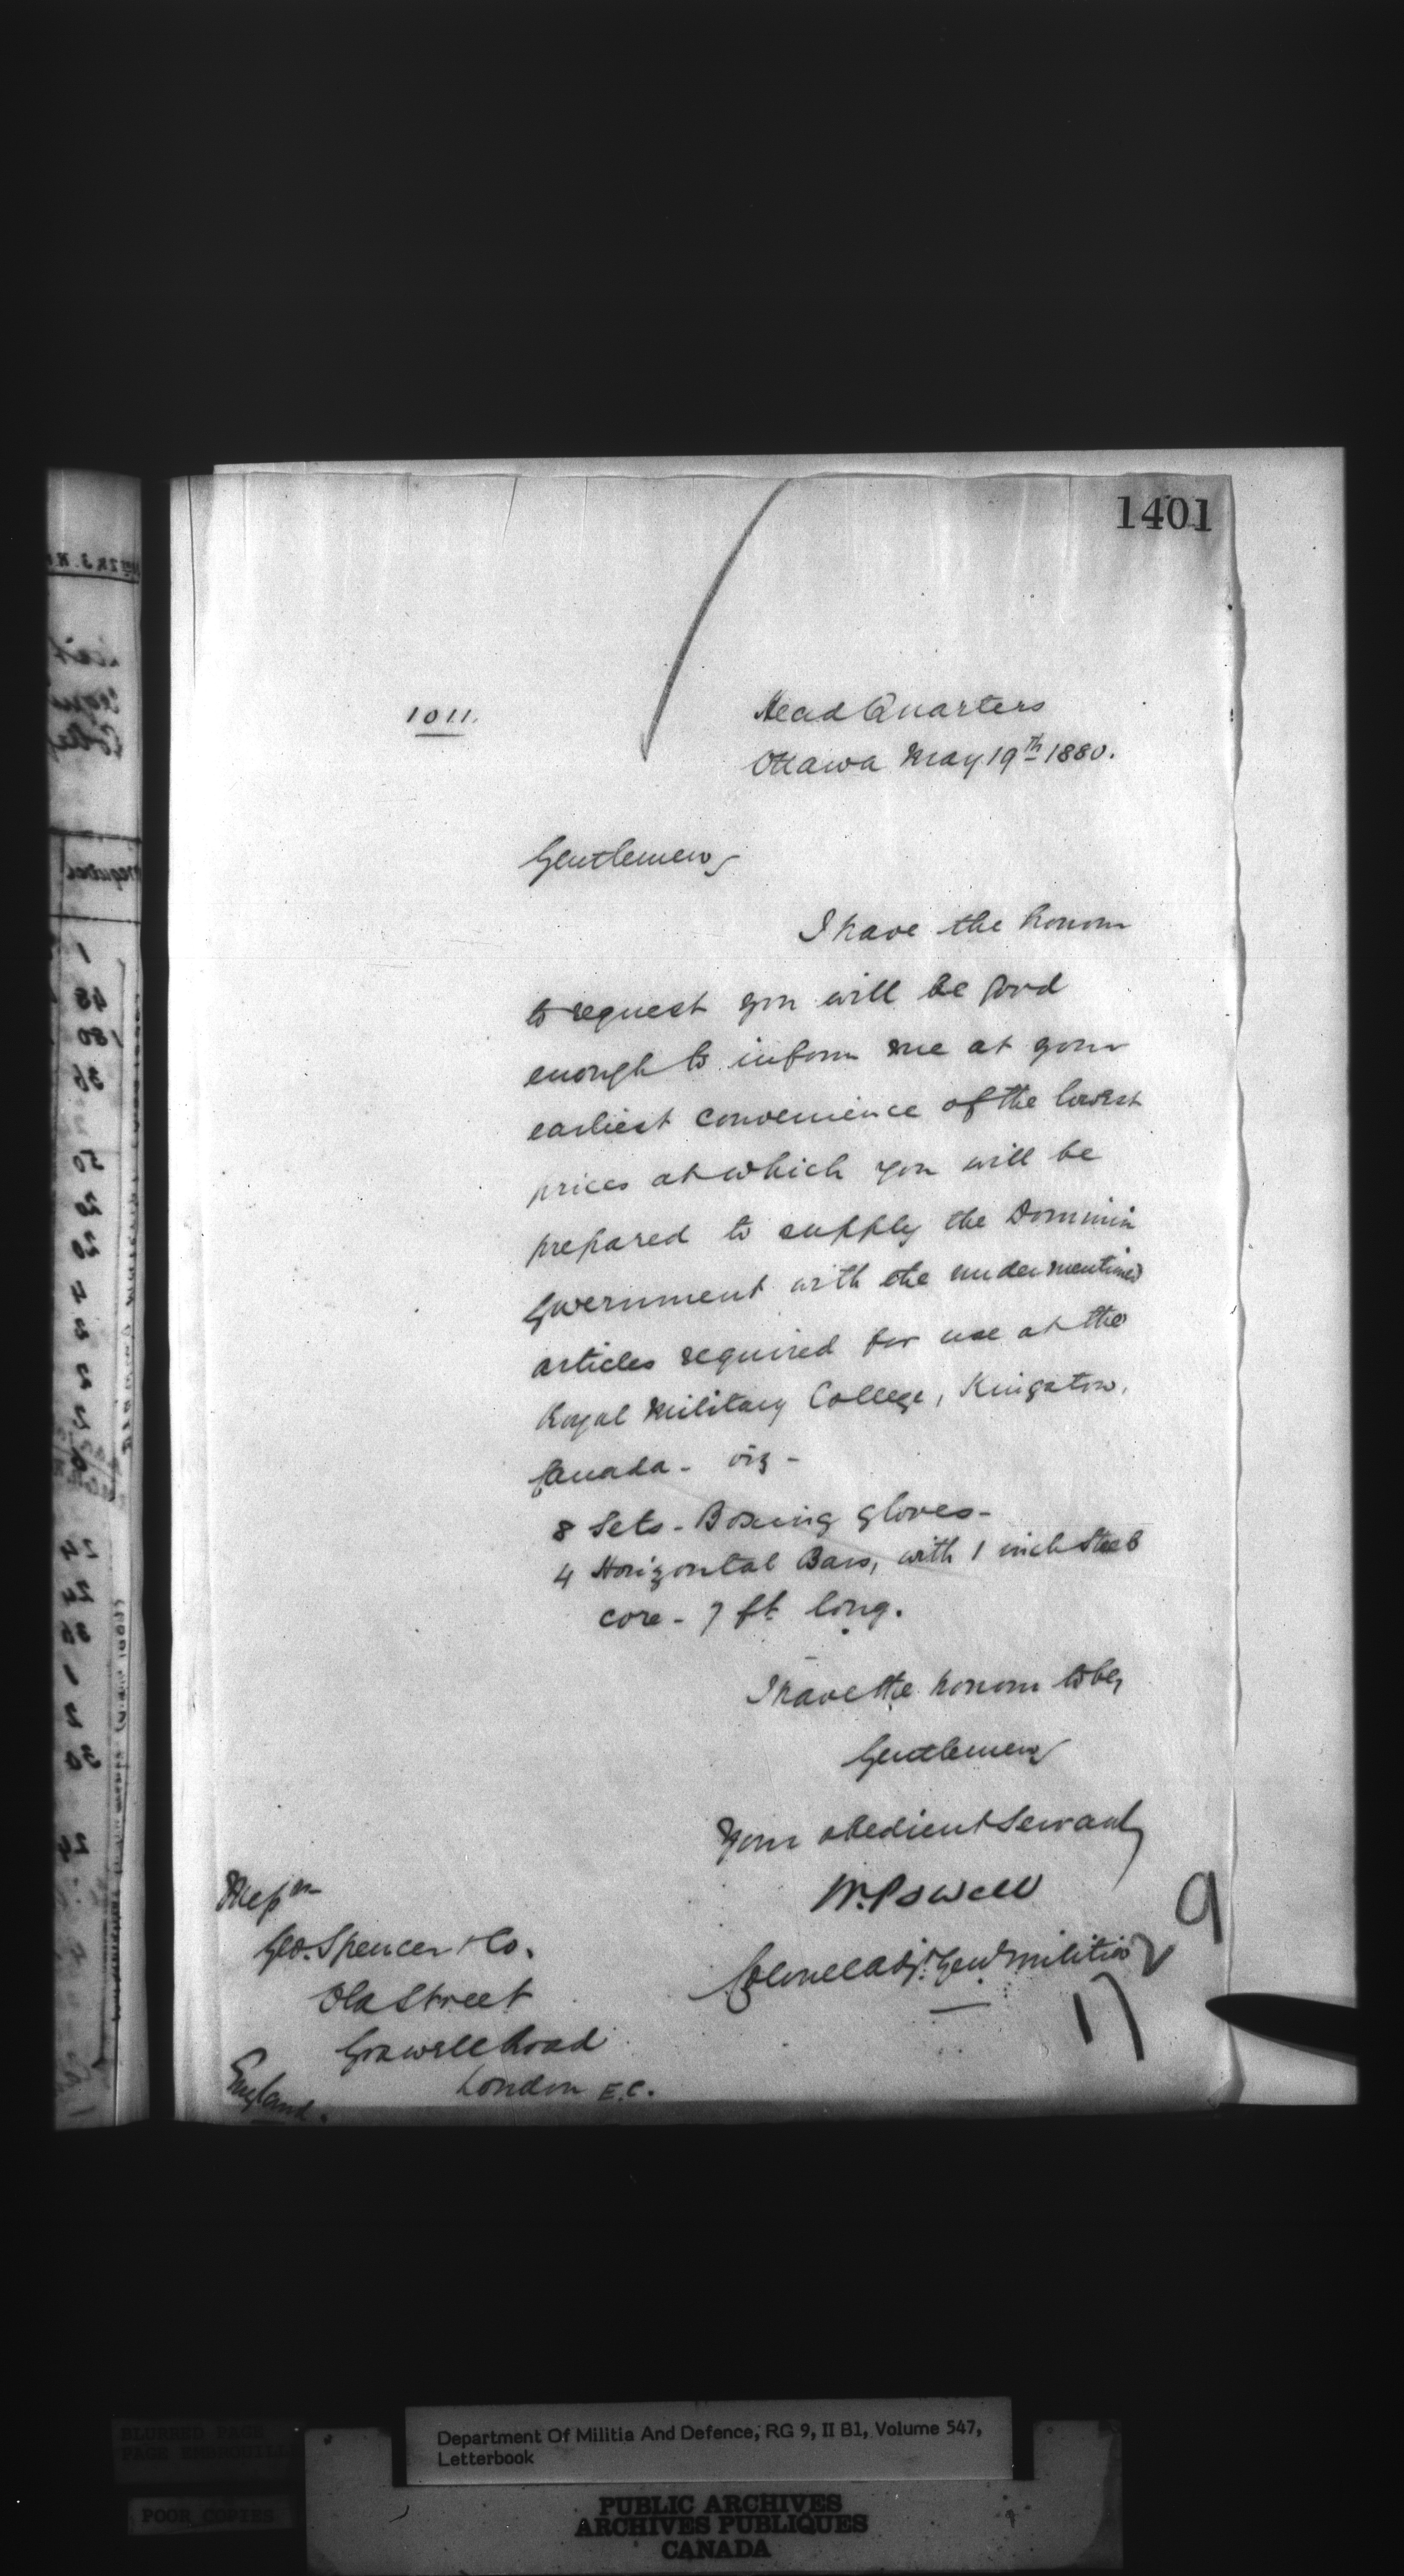 1401
1011.
Head Quarters
Ottawa May 19th 1880.
Gentlemen,
I have the honour
to request you will be good
enough to inform me at your
earliest convenience of the lowest
prices at which you will be
prepared to supply the Dominion
Government with the undermentioned
articles required for use at the
Royal Military College, Kingston,
Canada - viz -
8 Sets - Boxing gloves -
4 Horizontal Bars, with 1 inch Steel
core - 7 ft long.
I have the honour to be,
Gentlemen,
Your obedient Servant,
W. Powell
Colonel Adjt. Genl Militia
Messrs
Geo. Spencer & Co.
Old Street
Goswell Road
London E.C.
England.
9
17
Department Of Militia And Defence, RG 9, II B1, Volume 547,
Letterbook
BLURRED PAGE
POOR COPIES
PUBLIC ARCHIVES
ARCHIVES PUBLIQUES
CANADA